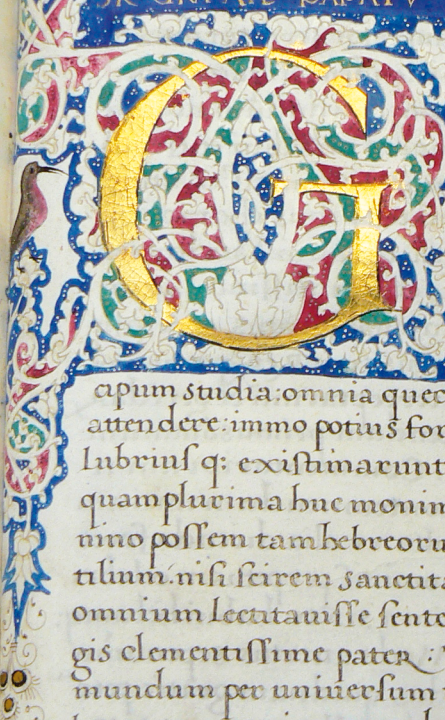 G
cipum studia:omnia quec
attendere:immo potiuſ for
lubriuſ q: exiſtimarunt
quamplurima huc monim
nino poſſem tam hebreoru
tilium:niſi ſcirem sanctita
omnium lectitauiſſe ſente
gis clementiſſime pater
mundum per uniuerſum